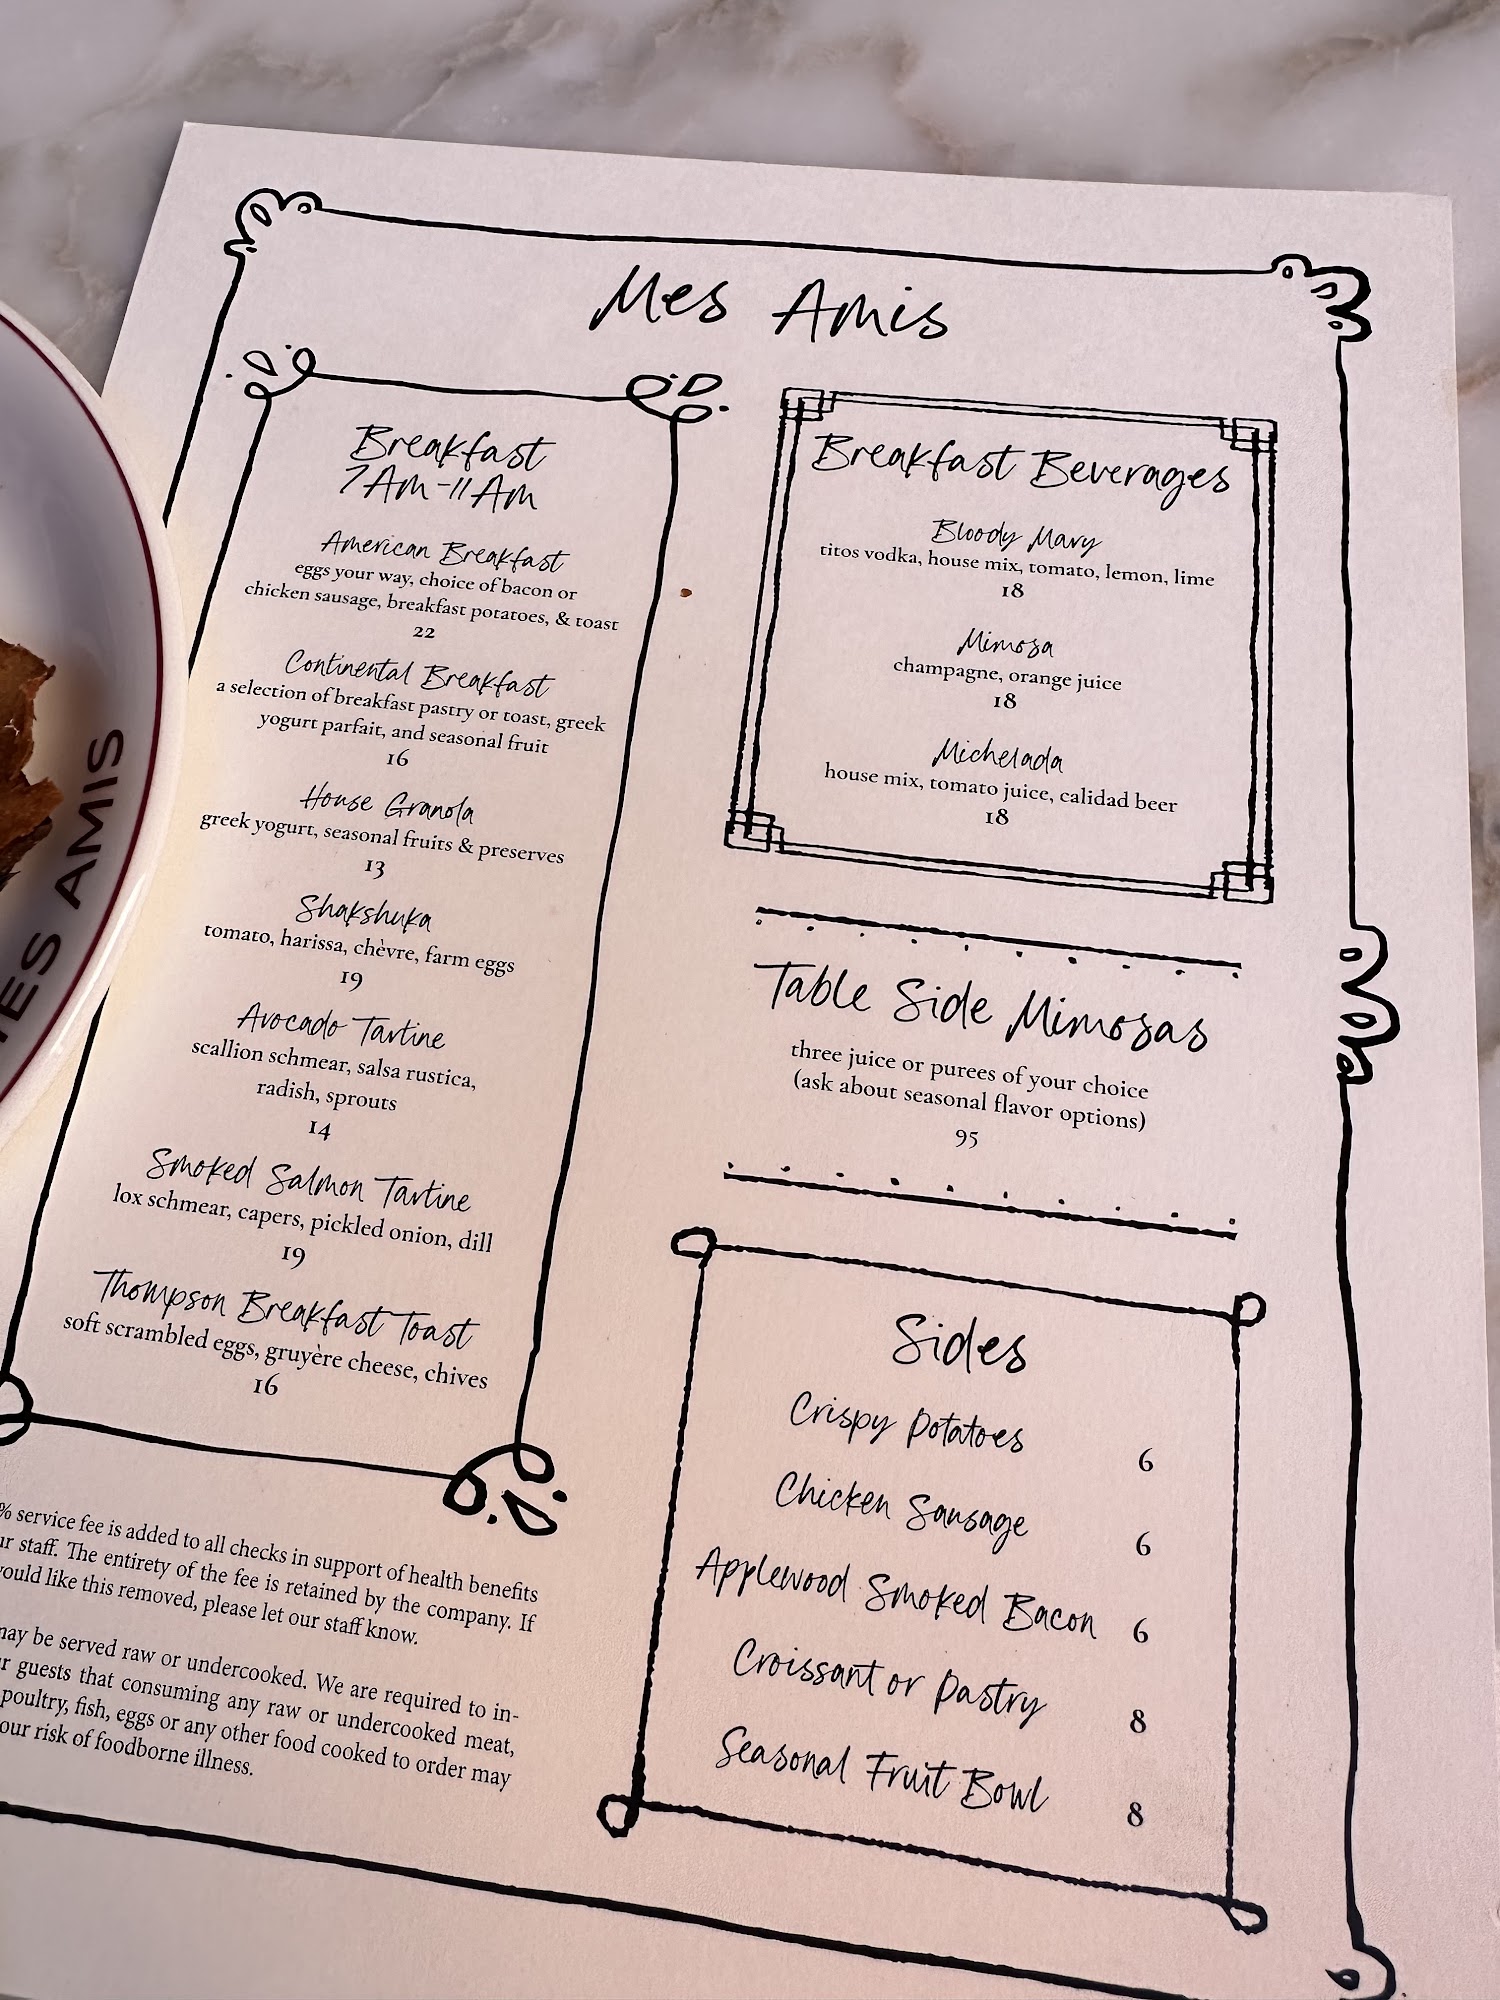 Mes Amis
Breakfast
7Am-11Am
American Breakfast
eggs your way, choice of bacon or
chicken sausage, breakfast potatoes, & toast
22
Continental Breakfast
a selection of breakfast pastry or toast, greek
yogurt parfait, and seasonal fruit
16
House Granola
greek yogurt, seasonal fruits & preserves
13
Shakshuka
tomato, harissa, chèvre, farm eggs
19
Avocado Tartine
scallion schmear, salsa rustica,
radish, sprouts
14
Smoked Salmon Tartine
lox schmear, capers, pickled onion, dill
19
Thompson Breakfast Toast
soft scrambled eggs, gruyère cheese, chives
16
% service fee is added to all checks in support of health benefits
staff. The entirety of the fee is retained by the company. If
would like this removed, please let our staff know.
may be served raw or undercooked. We are required to in-
guests that consuming any raw or undercooked meat,
poultry, fish, eggs or any other food cooked to order may
risk of foodborne illness.
Breakfast Beverages
Bloody Mary
titos vodka, house mix, tomato, lemon, lime
18
Mimosa
champagne, orange juice
18
Michelada
house mix, tomato juice, calidad beer
18
Table Side Mimosas
three juice or purees of your choice
(ask about seasonal flavor options)
95
Sides
Crispy Potatoes 6
Chicken Sausage 6
Applewood Smoked Bacon 6
Croissant or Pastry 8
Seasonal Fruit Bowl 8
MES AMIS